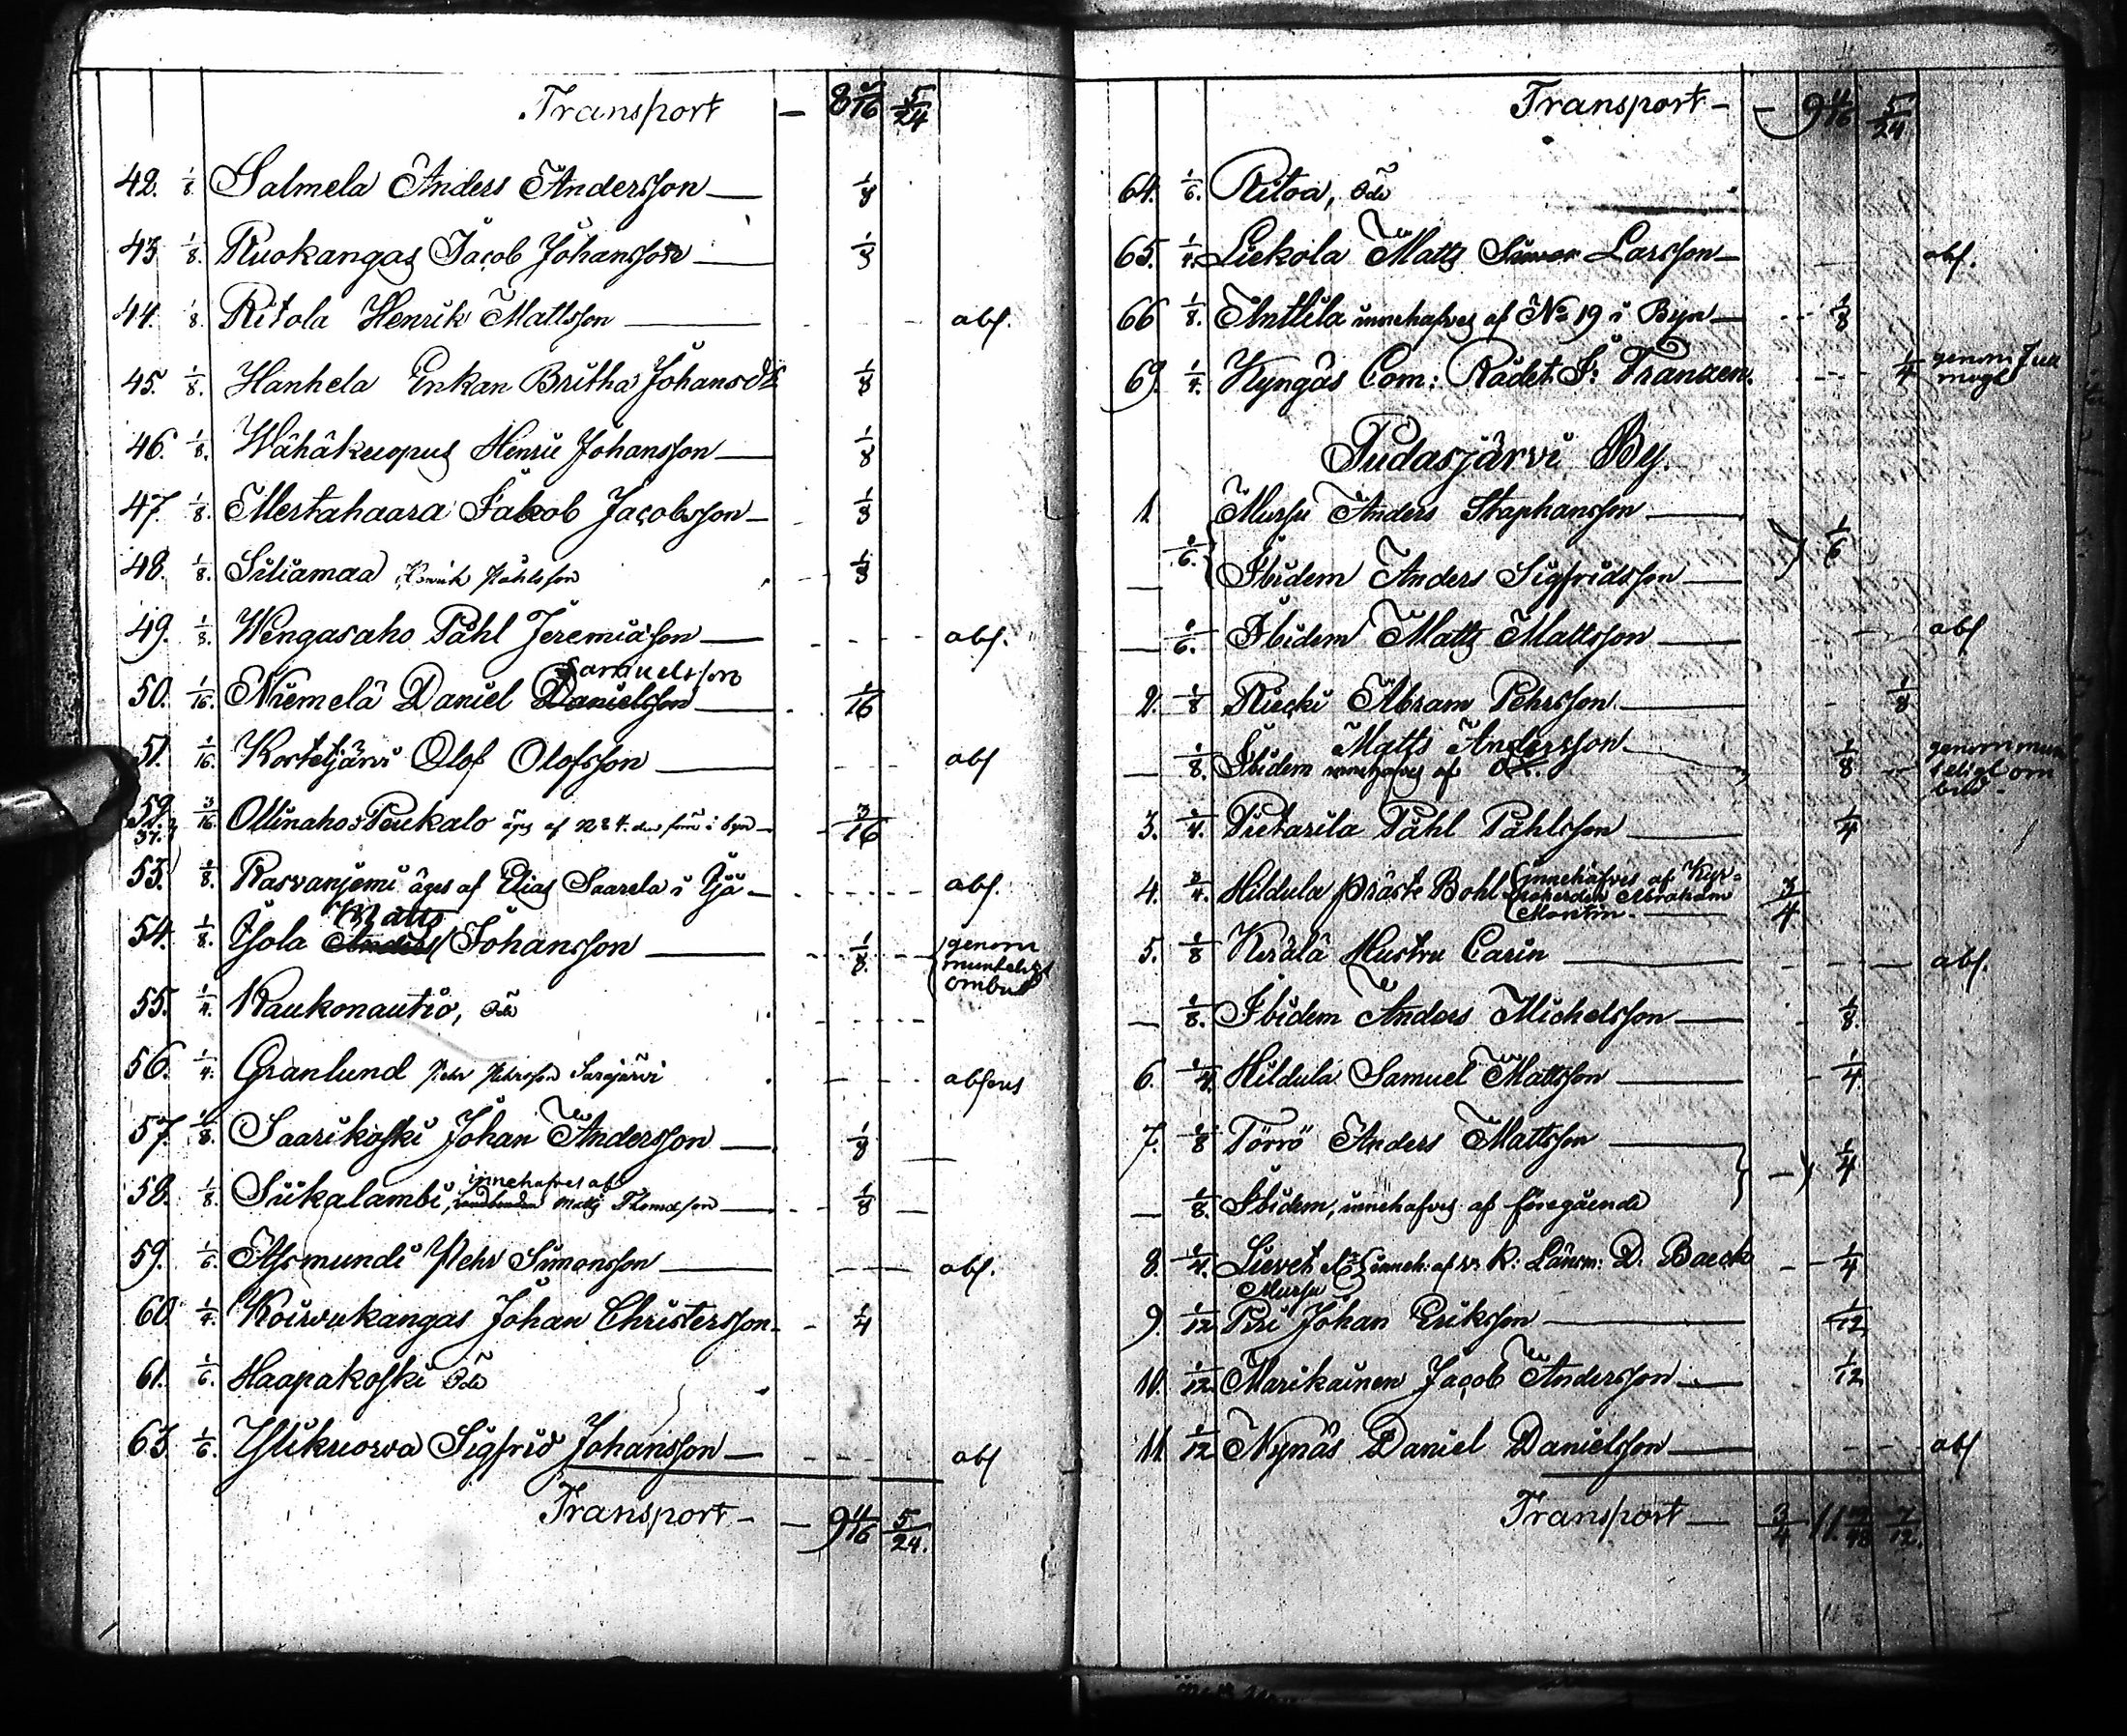 Transport — 8 5/16 5/24
42. 1/8. Salmela Anders Andersson — 1/8
43 1/8. Ruokangas Jacob Johansson — 1/8
44. 1/8. Ritola Henrik Mattsson — abs.
45. 1/8. Hanhela Enkan Britha Johansdr 1/8
46. 1/8. Wähäkuopus Henric Johansson — 1/8
47. 1/8. Mertahaara Jakob Jacobsson — 1/8
48. 1/8. Siliamaa Henrik Påhlsson 1/8
49. 1/8. Wengasaho Påhl Jeremiæson — abs.
Samuelsson
50. 1/16. Niemelä Daniel Danielsson — 1/16
51. 1/16. Kortetjärvi Olof Olofsson — abs
52. 3/16. Ollinaho & Peukalo äges af N 24 i byn — 3/16
37.
53. 1/8. Rasvanjemi äges af Elias Saarela i Ijå — abs.
Matts
54. 1/8. Jjola Anders Johansson — 1/8. genom munteligt ombud
55. 1/4. Kaukonautio, Öde
56. 1/4. Granlund Pehr Pehrsson Sarajärvi absens
57. 1/8. Saarikoski Johan Andersson — 1/8
innehafves af
58. 1/8. Siikalambi, Matts Thomasson — 1/8
59. 1/6. Asmundi Pehr Simonsson — abs.
60 1/4. Koivukangas Johan Christersson — 1/4
61. 1/6. Haapakoski Öde
63 1/6. Ylikuorva Sigfrid Johansson — abs
Transport — 9 11/16 5/24.
Transport — 9 11/16 5/24
64. 1/6. Ritoa, Öde
65. 1/4. Liekola Matts Larsson — abs.
66 1/8. Anttila innehafves af No 19 i Byn — 1/8
69. 1/4. Kyngäs Com: Rådet Fr: Franzen. 1/4 genom
Pudasjärvi By.
1 Mursu Anders Staphansson —
1/6. Ibidem Anders Sigfridsson — 1/6
— 1/6. Ibidem Matts Mattsson — abs
2. 1/8 Riecki Abram Pehrsson — 1/8
Matts Andersson
— 1/8. Ibidem innehafves af 1/8 genom munteligt ombud
3. 1/4. Pietarila Påhl Påhlsson — 1/4
4. 3/4. Hildula Präste Bohl innehafves af Kyrkoherden Abraham Montin. — 3/4
5. 1/8 Kerälä Hustru Carin — abs.
— 1/8. Ibidem Anders Michelsson — 1/8.
6. 1/4. Hildula Samuel Mattsson — 1/4
7. 1/8 Törrö Anders Mattsson — 1/4
— 1/8. Ibidem, innehafves af föregående
8. 1/4. Sievet inneh: af v: K: Länsm: D. Baeck 1/4
Mursu
9. 1/12 Piri Johan Eriksson — 1/12
10. 1/12 Marikainen Jacob Andersson — 1/12
11. 1/12 Nynäs Daniel Danielsson — abs
Transport — 3/4 11 7/12.